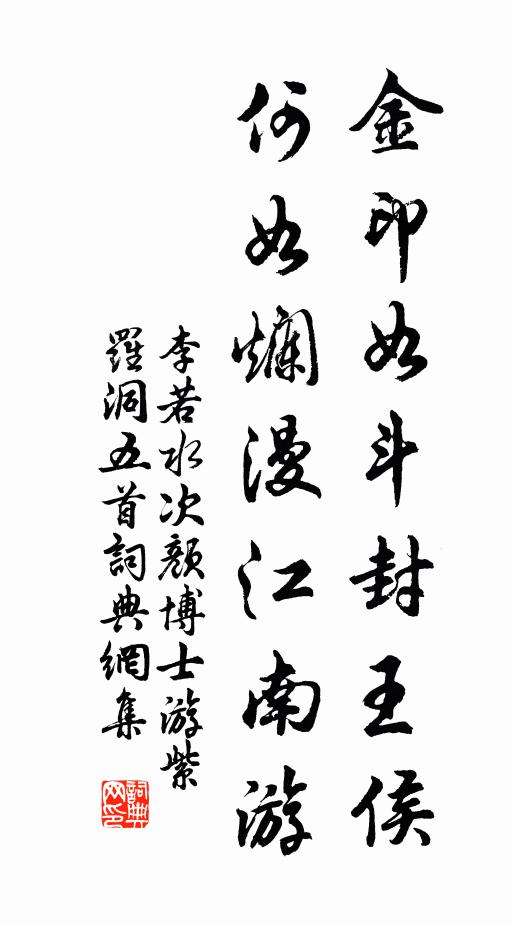 金印如斗封王侯
何如爛漫江南游
李若水次顏博士游紫
羅洞五首詞典網集
詞典网印